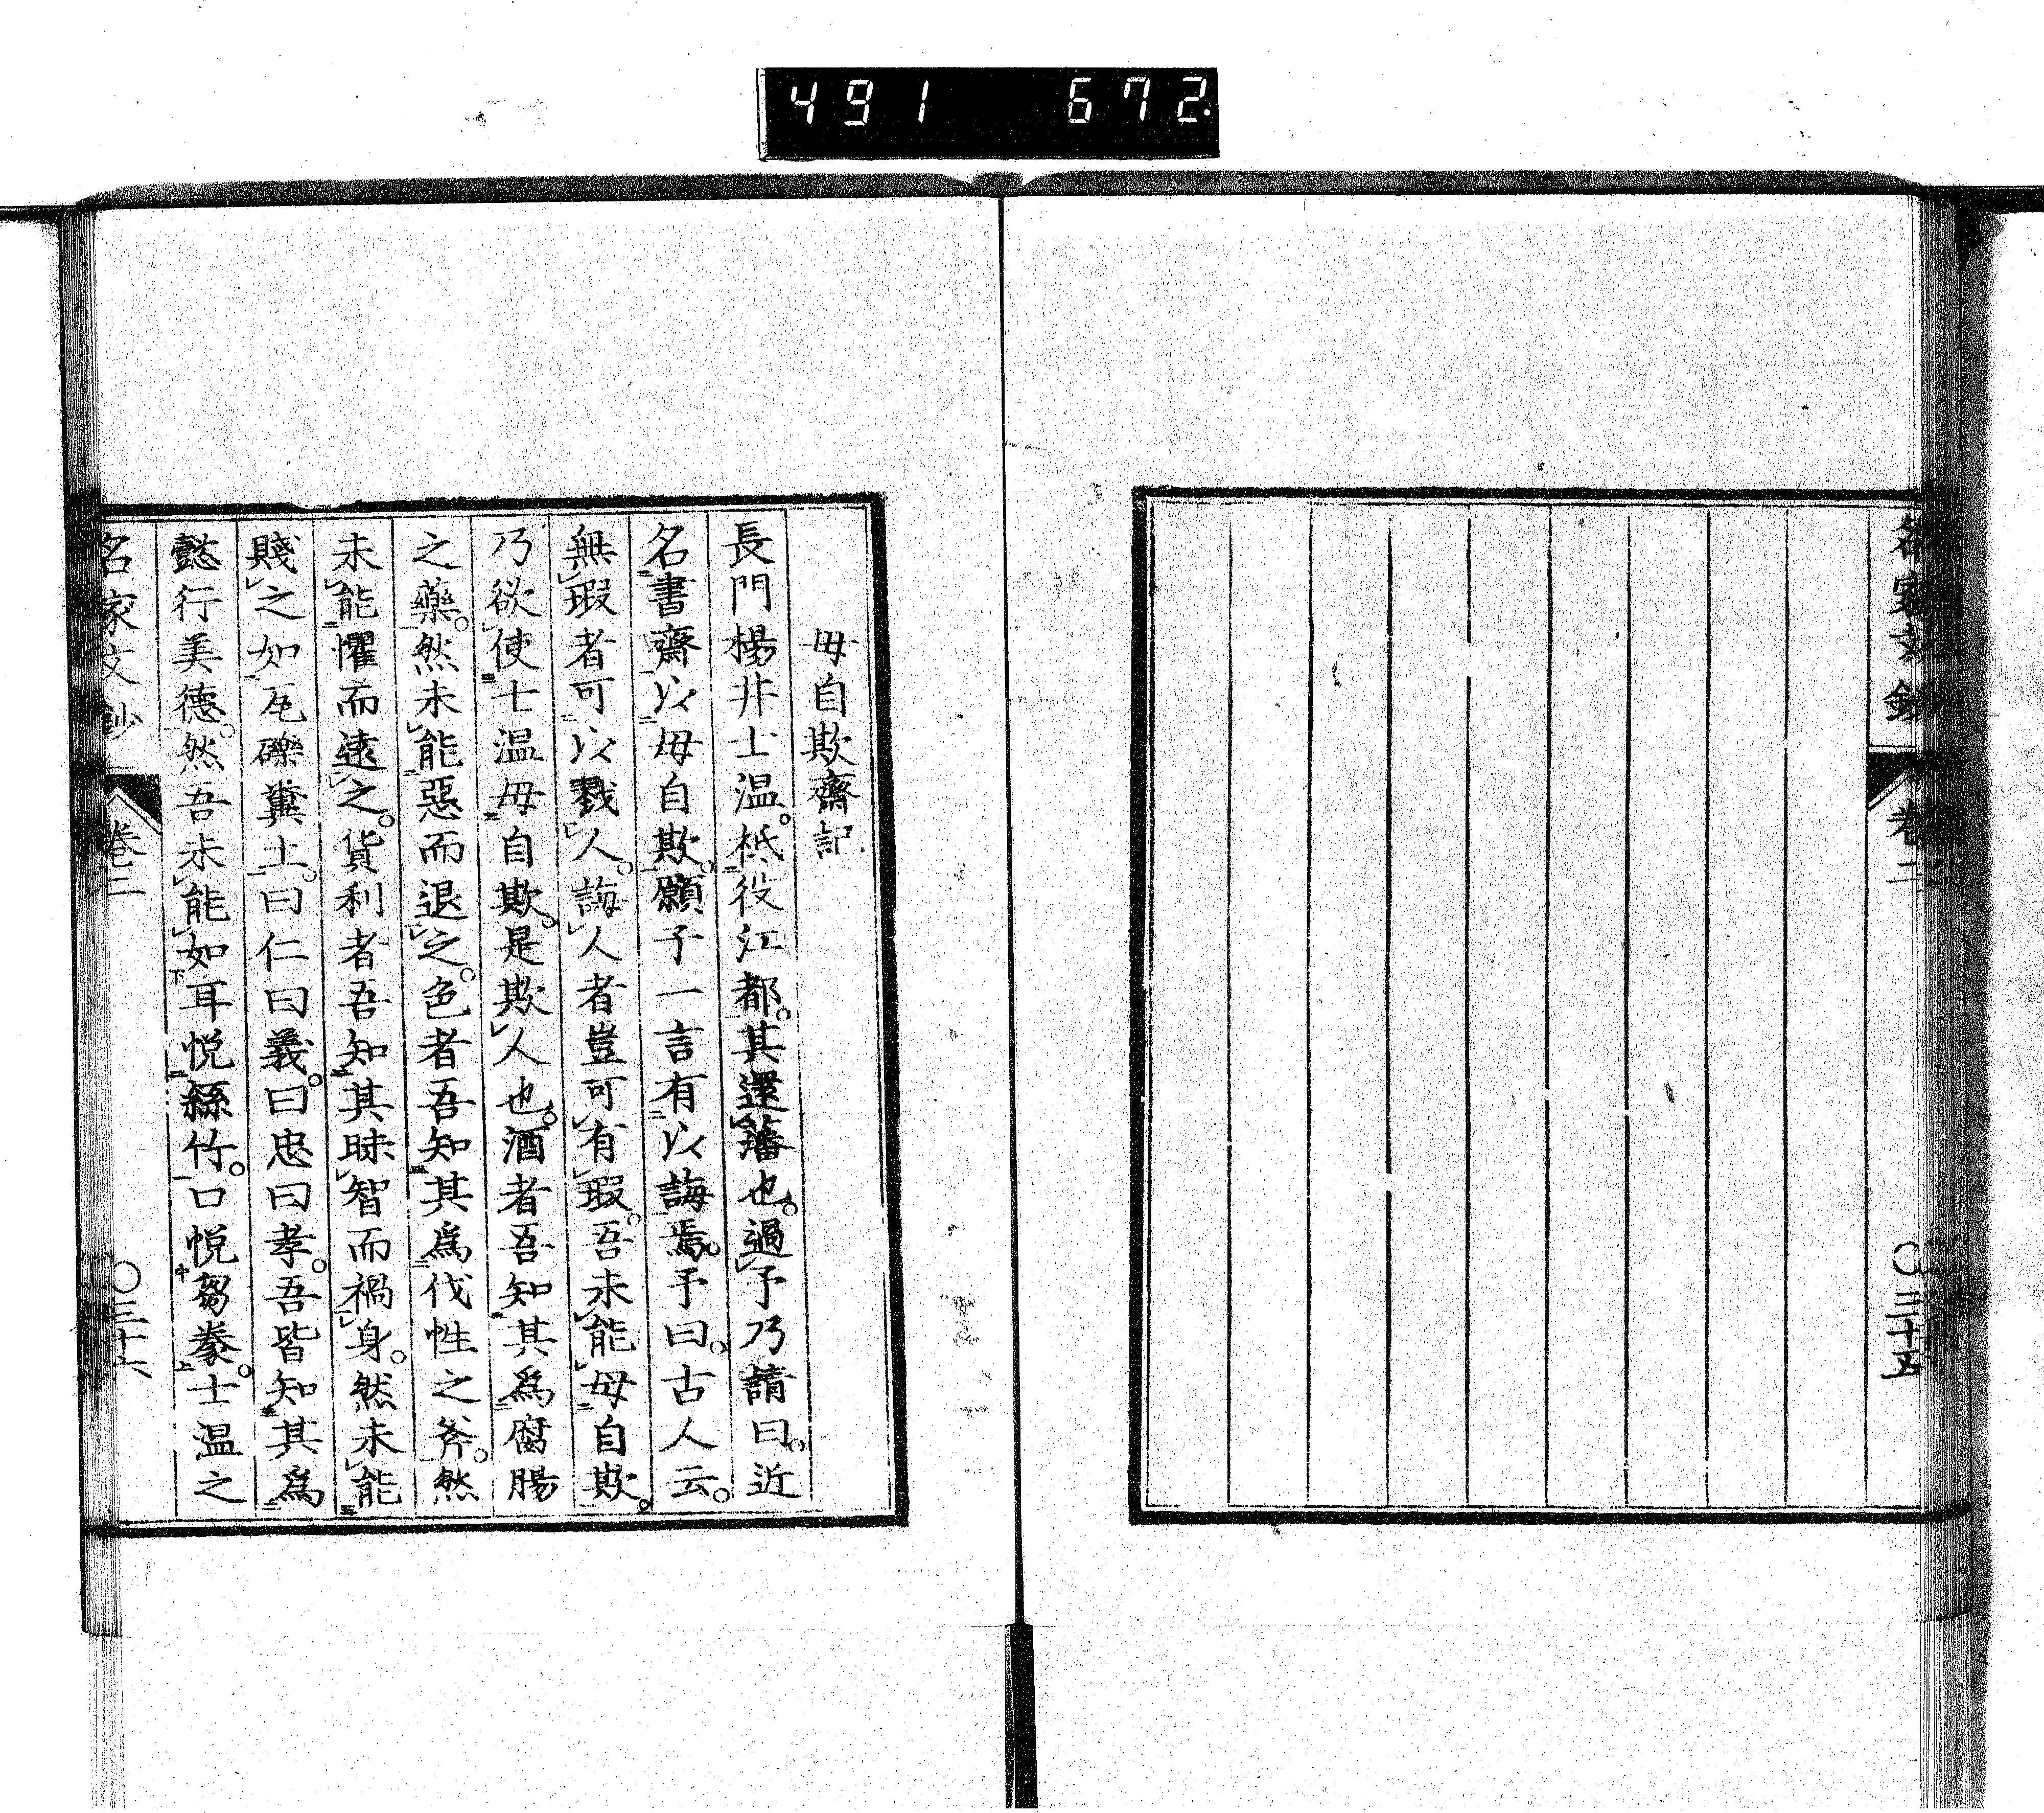 491 672
名家文鈔
卷二
〇三十五
毋自欺齋記
長門楊井士温。祗役江都。其還藩也。過予乃請曰。近
名書齋以毋自欺。願予一言有以誨焉。予曰。古人云。
無瑕者可以戮人。誨人者豈可有瑕。吾未能毋自欺。
乃欲使士温毋自欺。是欺人也。酒者吾知其爲腐腸
之藥。然未能惡而退之。色者吾知其爲伐性之斧。然
未能懼而遠之。貨利者吾知其昧智而禍身。然未能
賤之如瓦礫糞土。曰仁曰義。曰忠曰孝。吾皆知其爲
懿行美德。然吾未能如耳悦絲竹。口悦芻豢。士温之
名家文鈔
卷二
〇三十六